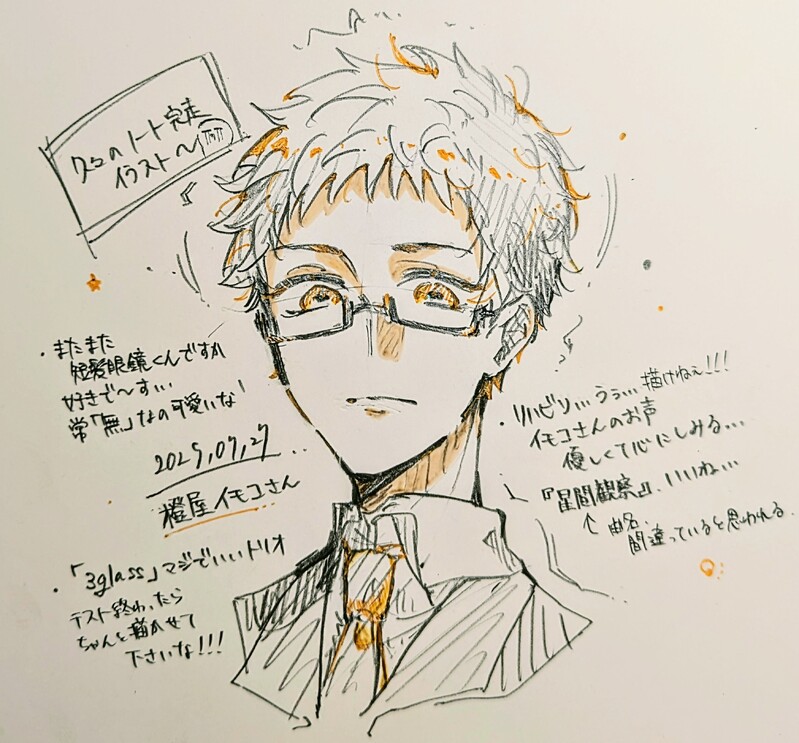 久々のノート完走
イラスト〜
またまた
短髪眼鏡くんですか
好きで〜すぃ、
常「無」なの可愛いな!
2025,07,27
橙屋イモコさん
「3glass」マジでいいトリオ
テスト終わったら
ちゃんと描かせて
下さいな!!!
リハビリ...うぅ...描けねぇ!!!
イモコさんのお声
優しくて心にしみる...
『星間観察』、いいね...
↑曲名、
間違っていると思われる.